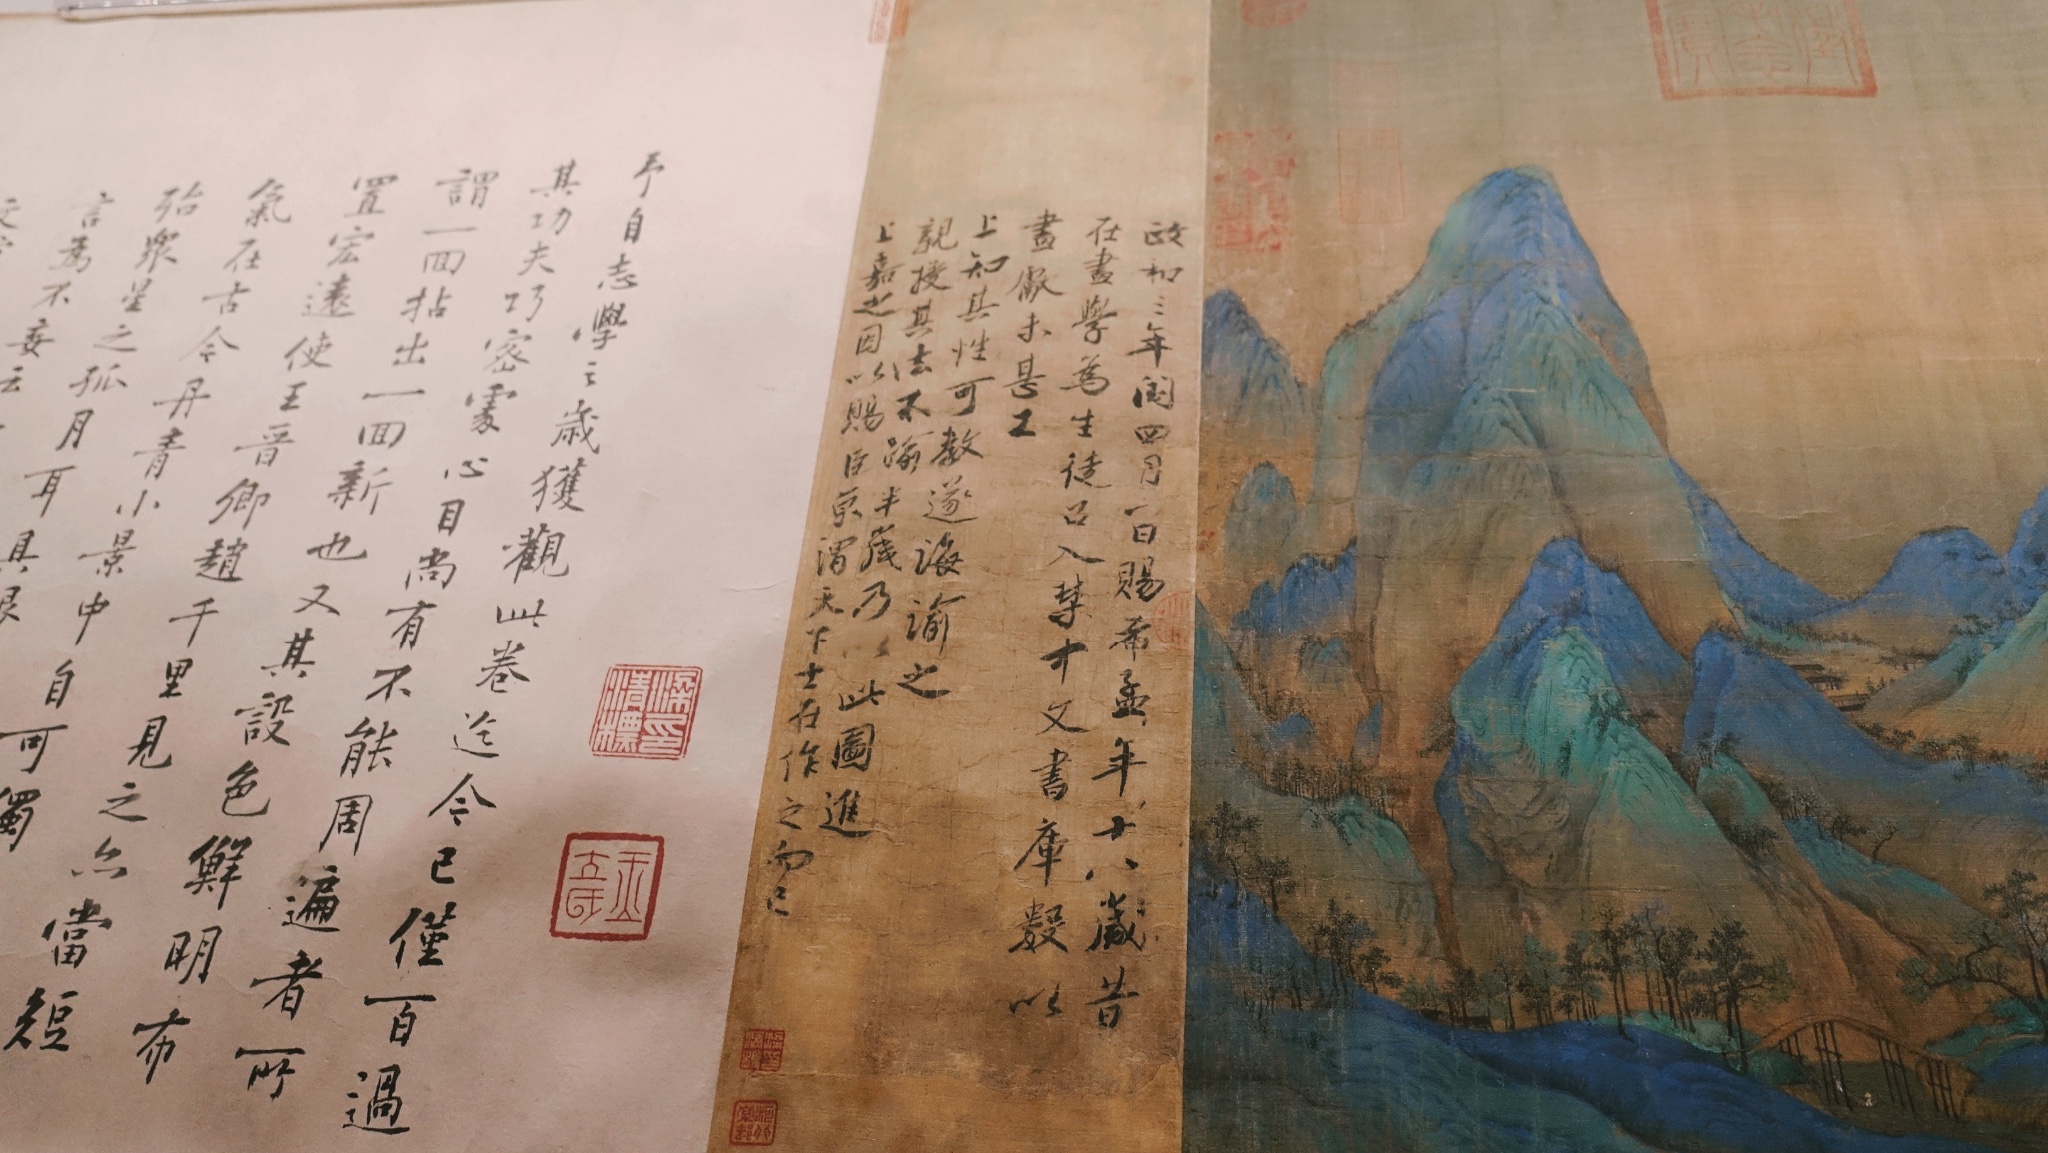 政和三年閏四月一日賜希孟年十八歲昔
在畫學為生徒召入禁中文書庫數以
畫獻未甚工
上知其性可教遂誨諭之
親授其法不踰半歲乃以此圖進
上嘉之因以賜臣京謂天下士在作之而已
予自志學之歲獲觀此卷迄今已僅百過
其功夫巧密處心目尚有不能周遍者所
謂一回拈出一回新也又其設色鮮明布
置宏遠使王晉卿趙千里見之亦當短
氣在古今丹青小景中自可獨
殆眾星之孤月耳具眼
言為不妄云
梁清標印